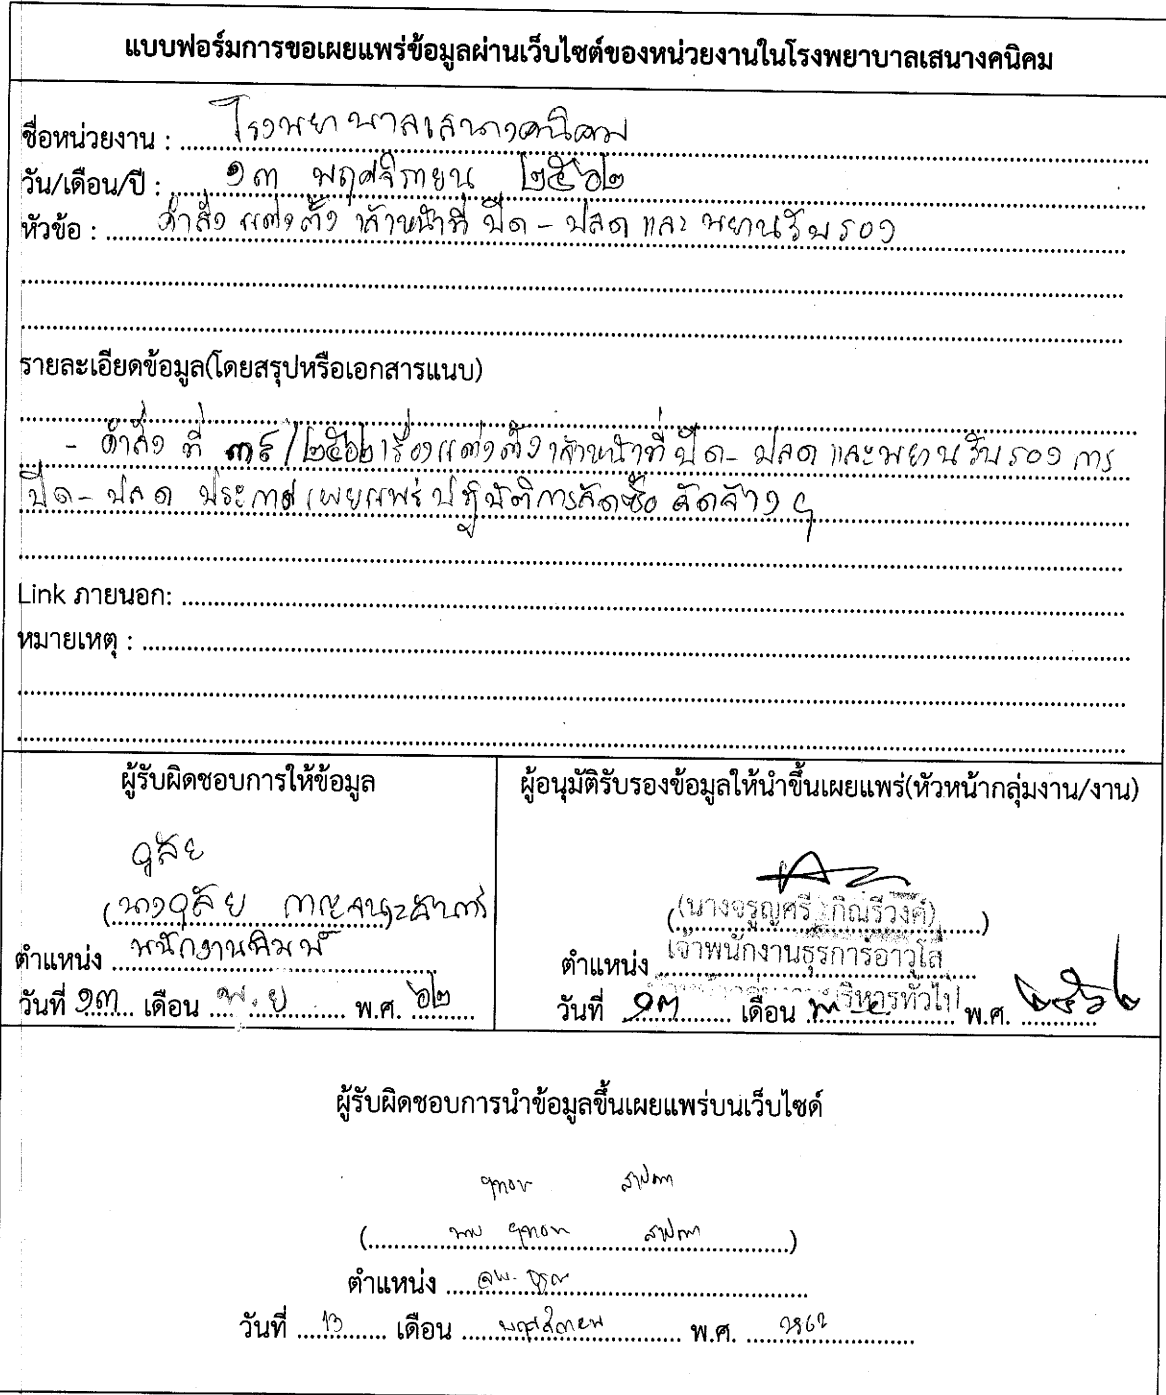 แบบฟอร์มการขอเผยแพร่ข้อมูลผ่านเว็บไซต์ของหน่วยงานในโรงพยาบาลเสนางคนิคม
ชื่อหน่วยงาน : โรงพยาบาลเสนางคนิคม
วัน/เดือน/ปี : ๑๓ พฤศจิกายน ๒๕๖๒
หัวข้อ : คำสั่ง แต่งตั้ง เจ้าหน้าที่ ปิด - ปลด และ พยานรับรอง
รายละเอียดข้อมูล(โดยสรุปหรือเอกสารแนบ)
- คำสั่ง ที่ ๓๕/๒๕๖๒ เรื่อง แต่งตั้ง เจ้าหน้าที่ ปิด - ปลด และพยานรับรอง การ
ปิด - ปลด ประกาศ เผยแพร่ ปฏิบัติการจัดซื้อ จัดจ้าง ฯ
Link ภายนอก:
หมายเหตุ :
ผู้รับผิดชอบการให้ข้อมูล ผู้อนุมัติรับรองข้อมูลให้นำขึ้นเผยแพร่(หัวหน้ากลุ่มงาน/งาน)
(นาง) (นางจรูญศรี กิณรีวงค์)
ตำแหน่ง พนักงานพิมพ์ ตำแหน่ง เจ้าพนักงานธุรการอาวุโส
บริหารทั่วไป
วันที่ ๑๓ เดือน พ.ย พ.ศ. ๖๒ วันที่ ๑๓ เดือน พ.ศ. ๒๕๖๒
ผู้รับผิดชอบการนำข้อมูลขึ้นเผยแพร่บนเว็บไซด์
ตำแหน่ง จพ. ธุรการ
วันที่ 13 เดือน พฤศจิกายน พ.ศ. 2562